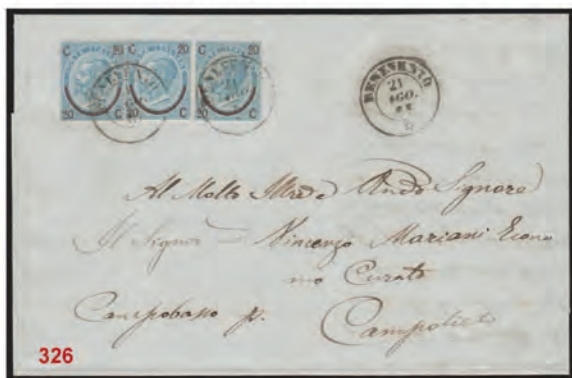 C 20 C 20 C 20
20 C 20 C 20 C
BENEVENTO
21
AGO.
BENEVENTO
21
AGO.
Al Molto Illre e Rndo Signore
Il Signor Vincenzo Mariani Econo
mo Curato
Campobasso p. Campolieto
326